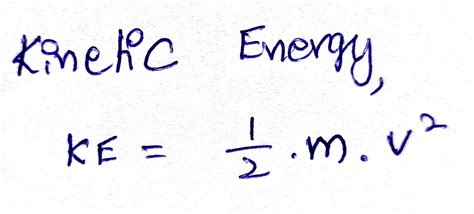 Kinetic Energy,
KE = 1/2 . m . v²